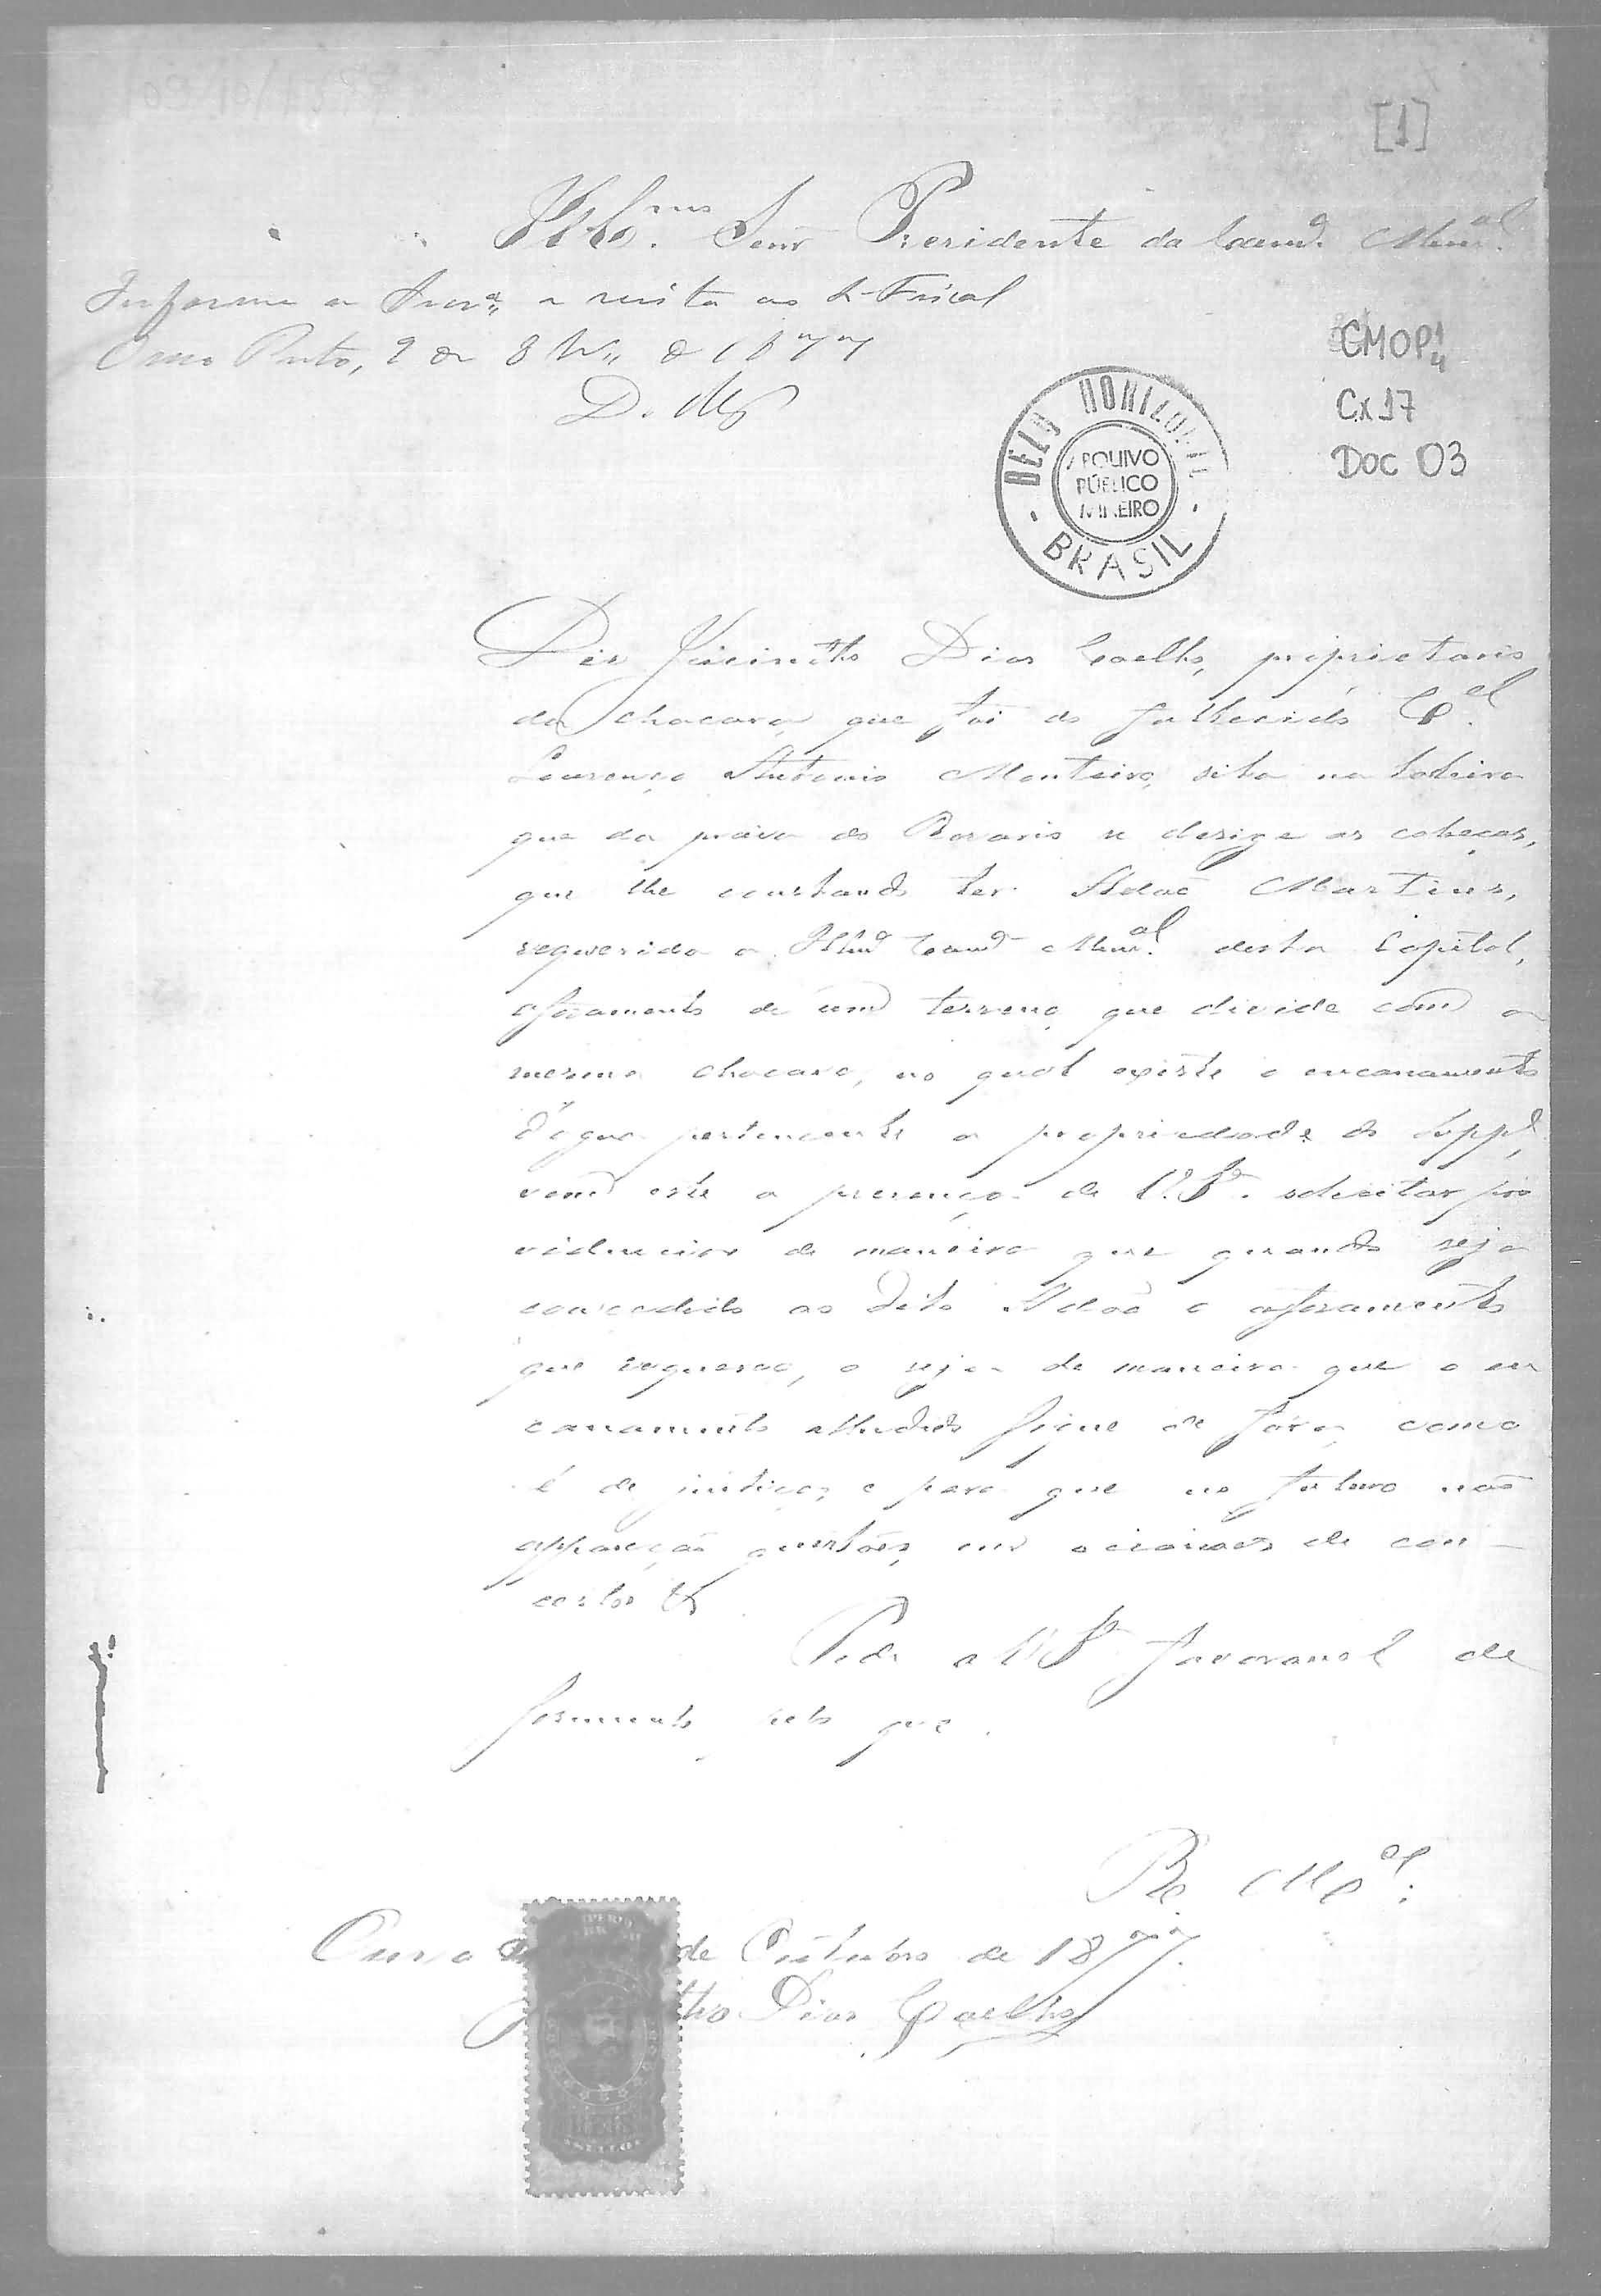 [1]
Illmo. Senr Presidente da Camra. Munal.
Informe a Procra., e vista ao Dr. Fiscal
Ouro Preto, 9 de 8br. de 1877
CMOP 1/4
Cx 17
DOC 03
BELO HORIZONTE
ARQUIVO
PÚBLICO
MINEIRO
BRASIL
Diz Jacintho Dias Coelho, proprietario
da chacara que foi do fallecido Cel.
Lourenço Antonio Monteiro, sita na ladeira
que da praia do Rozario se derige as cabeças,
que lhe constando ter Adão Martins,
requerido a Illma Camra Munal. desta Capital,
aforamento de um terreno que divide com a
mesma chacara, no qual existe o encanamento
d'agua pertencente a propriedade do Suppe,
vem este a presença de V. Sa. solicitar pro
videncias de maneira que quando seja
concedido ao dito Adão o aforamento
que requereo, o seja de maneira que o en
canamento alludido fique de fóra, como
é de justiça, e para que no futuro não
appareção questões, em occasiões de con-
certos &
Pede a V. Sa favoravel de
ferimento pelo que
R. Mcê.
Ouro de Outubro de 1877.
tho Dias Coelho